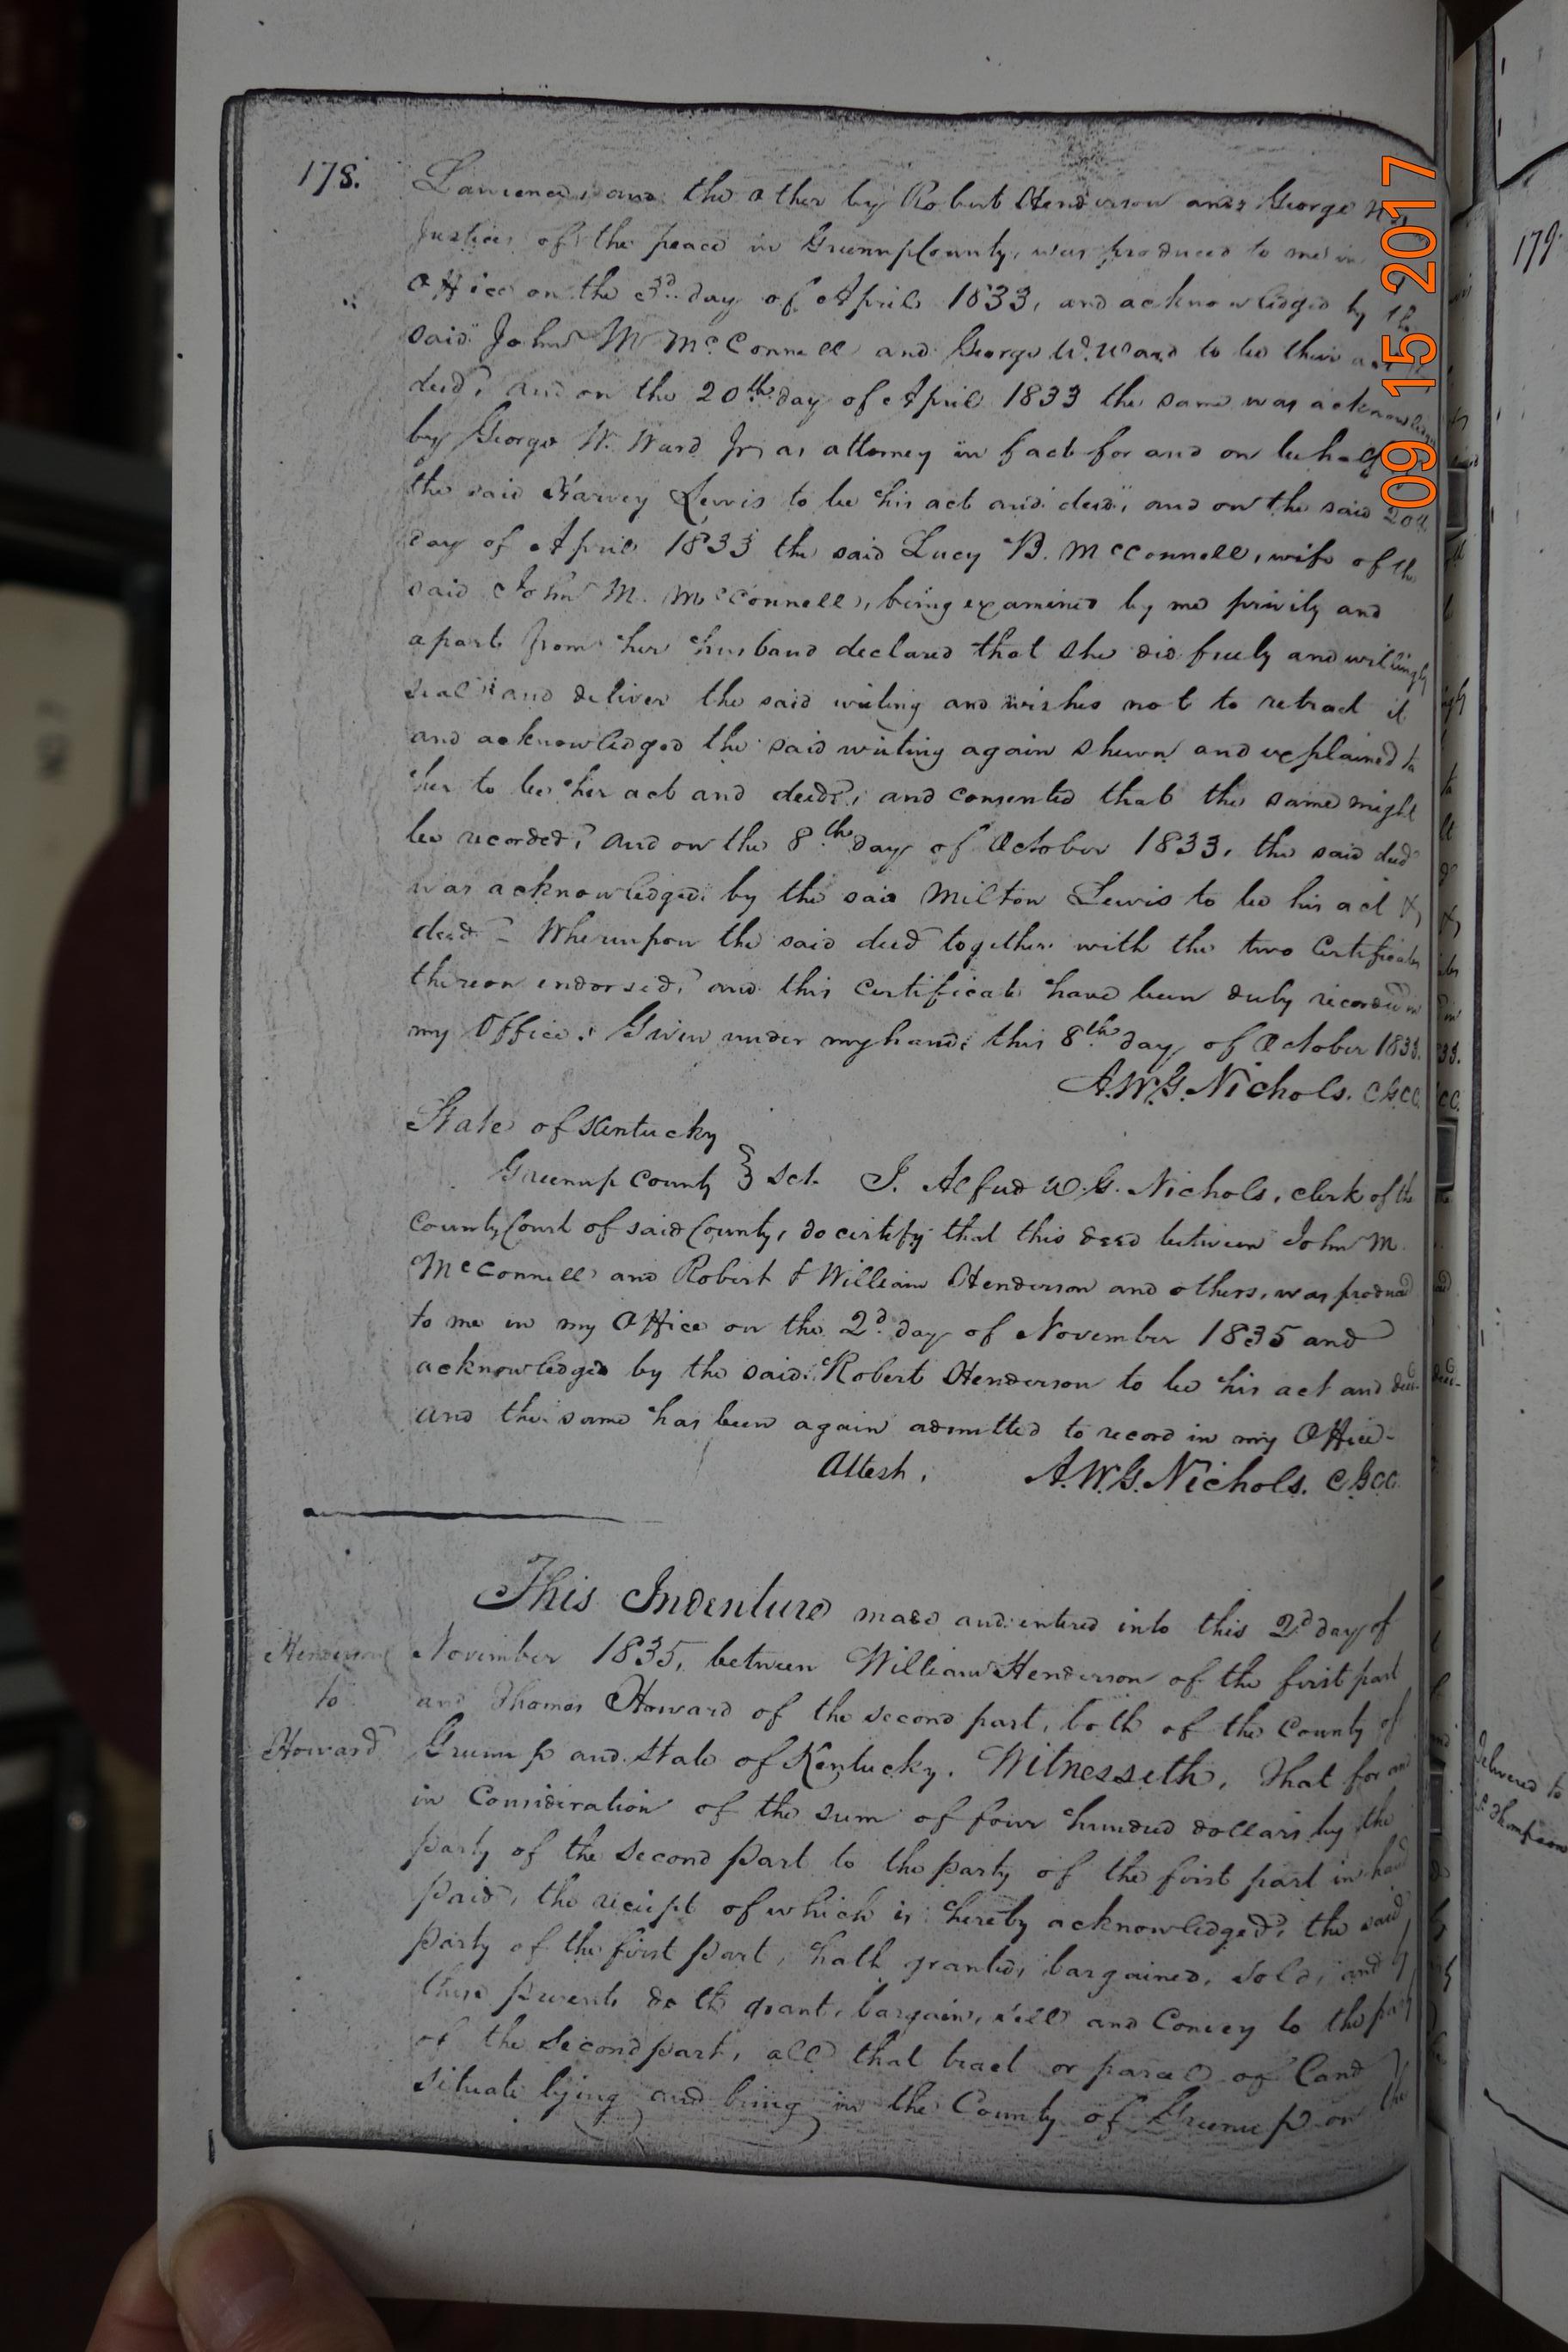 178.
Lawrence, and the other by Robert Henderson and George
Justices of the peace in Greenup County, was produced to me in
Office on the 3d. day of April 1833, and acknowledged by the
said John M McConnell and George W. Ward to be their act
deed, and on the 20th day of April 1833 the same was acknowledged
by George W. Ward Jr, as attorney in fact for and on behalf
the said Harvey Lewis to be his act and deed, and on the said 20th
day of April 1833 the said Lucy B. McConnell, wife of the
said John M. McConnell, being examined by me privily and
apart from her husband declared that she did freely and willingly
seal and deliver the said writing and wishes not to retract it
and acknowledged the said writing again shewn and explained to
her to be her act and deed, and consented that the same might
be recorded, and on the 8th day of October 1833, the said deed
was acknowledged by the said Milton Lewis to be his act &
deed - Whereupon the said deed together with the two Certificates
thereon endorsed, and this Certificate have been duly recorded in
my Office. Given under my hand this 8th day of October 1833.
A.W.G. Nichols. C.G.C.C.
State of Kentucky
Greenup County } Sct. I. Alfred W. G. Nichols, clerk of the
County Court of said County, do certify that this deed between John M.
McConnell and Robert & William Henderson and others, was produced
to me in my Office on the 2d. day of November 1835 and
acknowledged by the said Robert Henderson to be his act and deed
and the same has been again admitted to record in my Office-
Attest, A.W.G. Nichols. C.G.C.C.
This Indenture made and entered into this 2d day of
Henderson
to
Howard
November 1835, between William Henderson of the first part
and Thomas Howard of the second part, both of the County of
Greenup and State of Kentucky. Witnesseth, That for and
in Consideration of the sum of four hundred dollars by the
party of the second part to the party of the first part in hand
paid, the receipt of which is hereby acknowledged, the said
party of the first part, hath granted, bargained, sold, and by
these presents doth grant, bargain, sell and Convey to the party
of the second part, all that tract or parcel of land
situate lying and being in the County of Greenup on the
09 15 2017
179.
Delivered to
Thompson